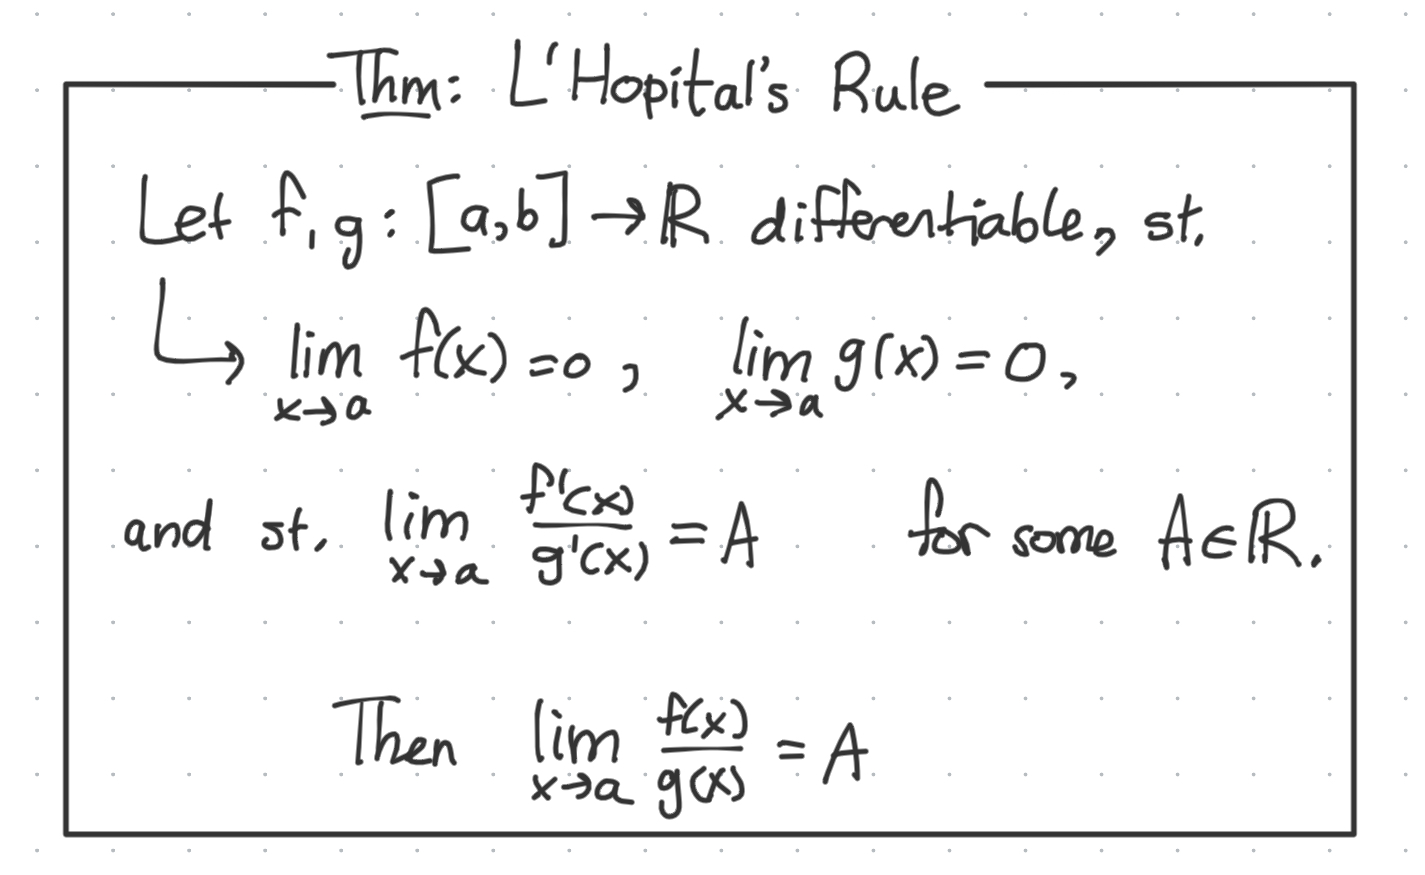 Thm: L'Hopital's Rule
Let f, g : [a,b] → ℝ differentiable, st.
↳ lim_{x→a} f(x) = 0 , lim_{x→a} g(x) = 0 ,
and st. lim_{x→a} f'(x)/g'(x) = A for some A ∈ ℝ.
Then lim_{x→a} f(x)/g(x) = A